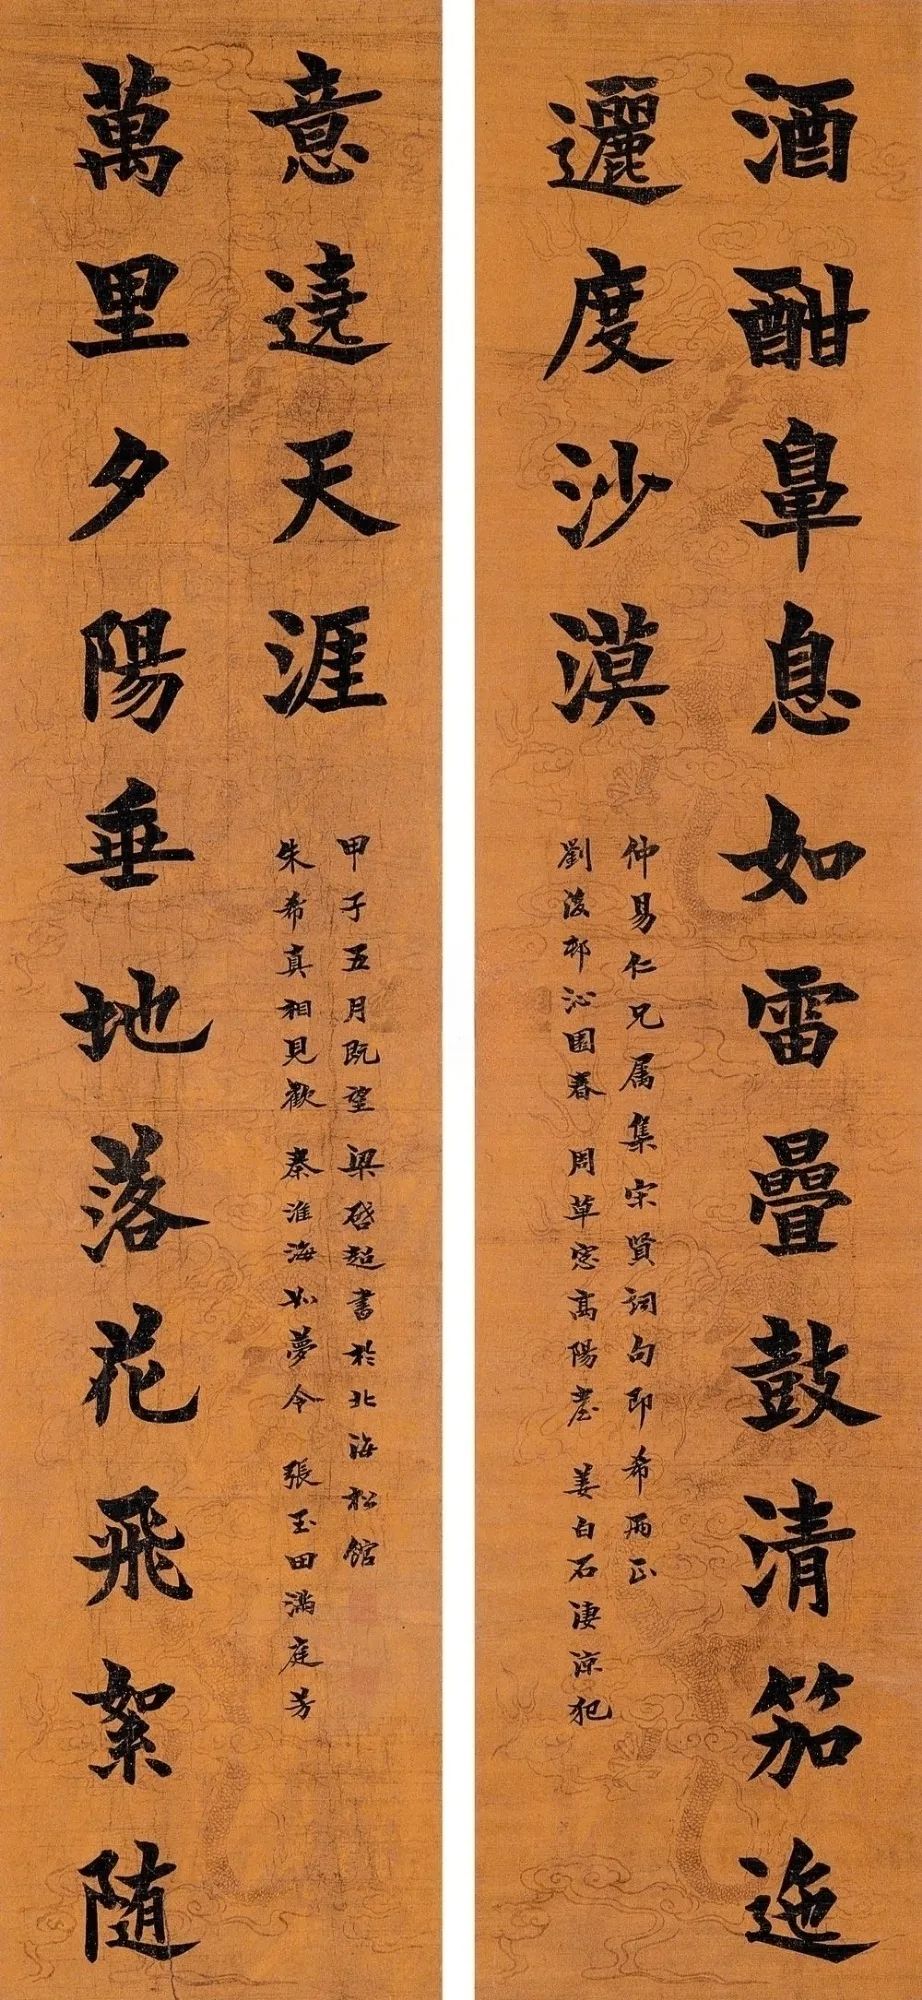 酒酣鼻息如雷疊鼓清笳迤
邐度沙漠
仲易仁兄属集宋賢詞句即希两正
劉後邨沁園春 周草窓高陽臺 姜白石淒涼犯
萬里夕陽垂地落花飛絮随
意遶天涯
甲子五月既望 梁啓超書於北海松館
朱希真相見歡 秦淮海如夢令 張玉田滿庭芳